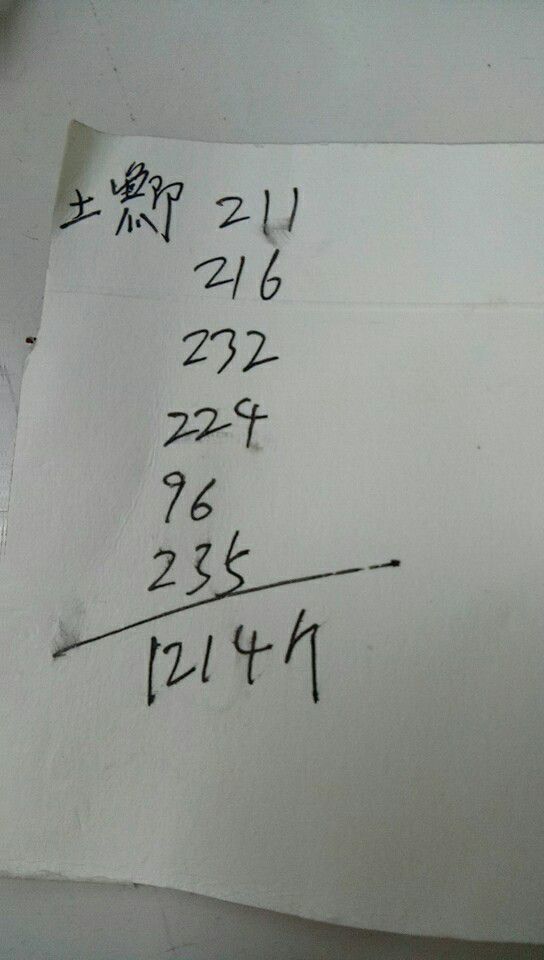 土 211
216
232
224
96
235
1214个